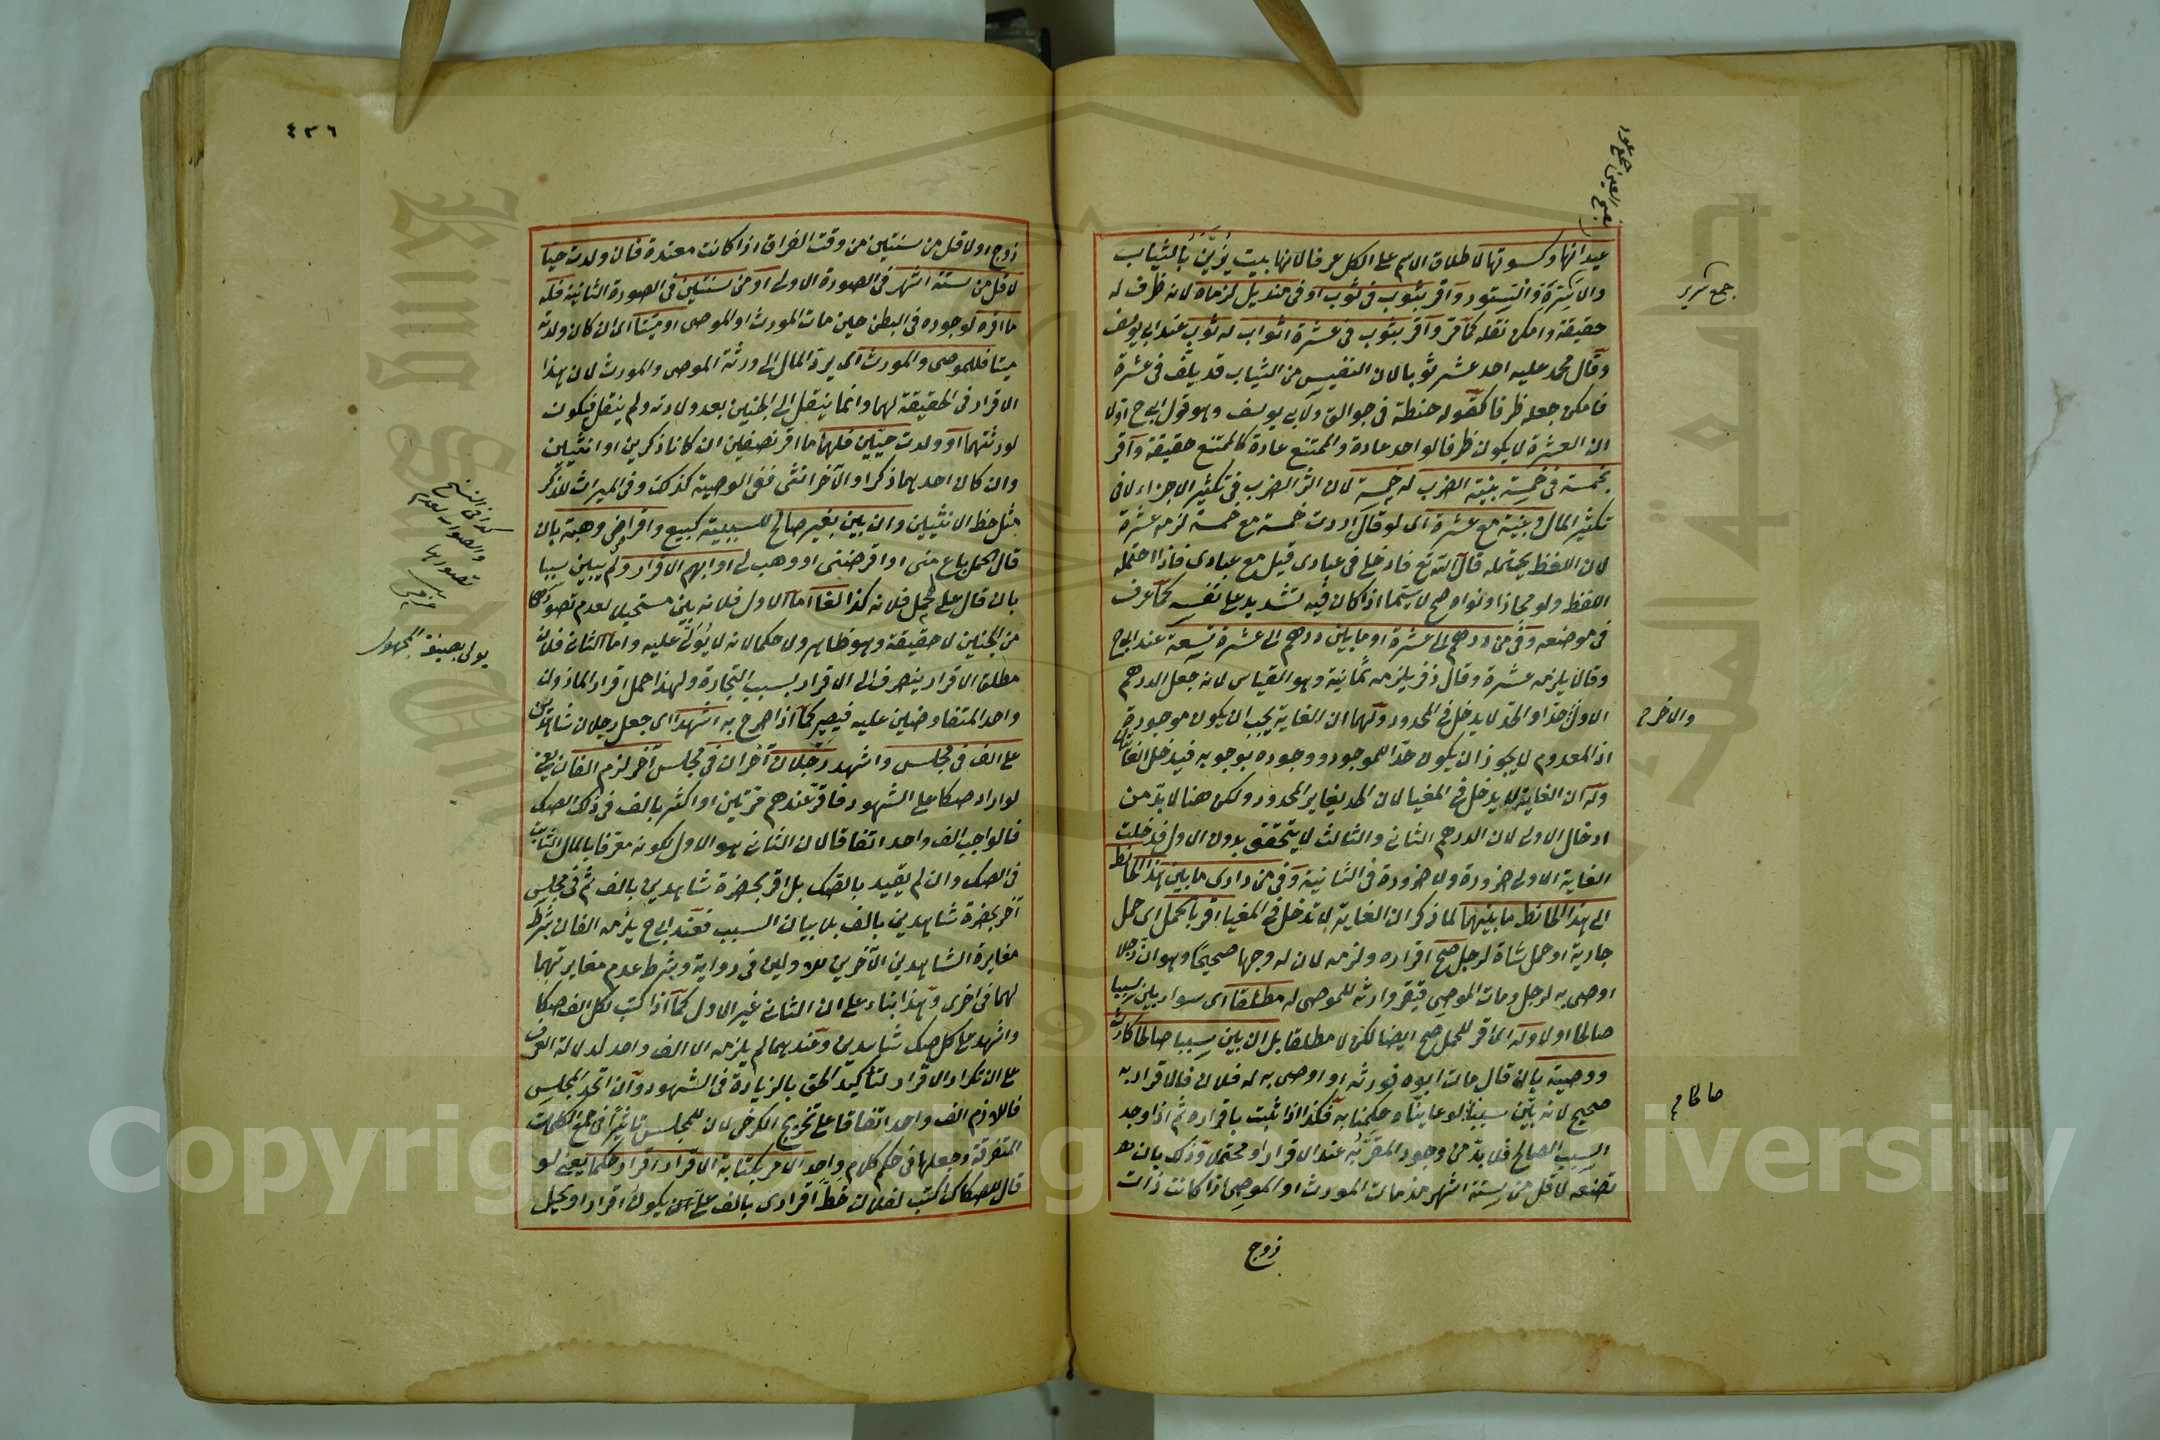 عيدانها وكسوتها لاطلاق الاسم على الكل عرفا لانها بيت يزين بالثياب
والاسرة والستور واقر بثوب في ثوب او في منديل لزماه لانه ظرف له
حقيقة وامكن نقله كما قر واقر بثوب في عشرة اثواب له ثوب عند ابي يوسف
وقال محمد عليه احد عشر ثوبا لان النفيس من الثياب قد يلف في عشرة
فامكن جعله ظرفا كقوله حنطة في جوالق ولابي يوسف وهو قول ابي ح اولا
ان العشرة لا يكون ظرفا لواحد عادة والممتنع عادة كالممتنع حقيقة واقر
بخمسة في خمسة بنية الضرب له خمسة لان اثر الضرب في تكثير الاجزاء لا في
تكثير المال وبنية مع عشرة اى لو قال اردت خمسة مع خمسة لزمه عشرة
لان اللفظ يحتمله قال الله تع فادخلي في عبادى قيل مع عبادى فاذا احتمله
اللفظ ولو مجازا ونواه صح لا سيما اذا كان فيه تشديد على نفسه كما عرف
في موضعه وفي من درهم الى عشرة او ما بين درهم الى عشرة تسعة عند ابي ح
وقالا يلزمه عشرة وقال زفر يلزمه ثمانية وهو القياس لانه جعل الدرهم
الاول حدا والحد لا يدخل في المحدود ولهما ان الغاية يجب ان يكون موجودة
اذ المعدوم لا يجوز ان يكون حدا للموجود ووجوده بوجوبه فيدخل الغايتان
وله ان الغاية لا يدخل في المغيا لان الحد يغاير المحدود ولكن هنا لا بد من
ادخال الاولى لان الدرهم الثاني والثالث لا يتحقق بدون الاول فدخلت
الغاية الاولى ضرورة ولا ضرورة في الثانية وفي من دارى ما بين هذا الحائط
الى هذا الحائط ما بينهما لما ذكر ان الغاية لا تدخل في المغيا اقر بالحمل اى حمل
جارية او حمل شاة لرجل صح اقراره ولزمه لان له وجها صحيحا وهو ان رجلا
اوصى به لرجل ومات الموصى فيقر وارثه للموصى له مطلقا اى سواء بين سببا
صالحا او لا وله اى اقر للحمل صح ايضا لكن لا مطلقا بل ان بين سببا صالحا كارث
ووصية بان قال مات ابوه فورثه او اوصى به له فلان فالاقرار به
صحيح لانه بين سببا لو عايناه حكمنا به فكذا اذا ثبت باقراره ثم اذا وجد
السبب الصالح فلا بد من وجود المقر به عند الاقرار او محتملا وذلك بان
تضعه لاقل من ستة اشهر مذ مات المورث او الموصى اذا كانت ذات
جمع سرير
والاخرج
صالحا
زوج
٤٣٦
زوج او لاقل من سنتين من وقت الفراق اذا كانت معتدة فان ولدت حيا
لاقل من ستة اشهر في الصورة الاولى او من سنتين في الصورة الثانية فله
ما اقر له لوجوده في البطن حين مات المورث او الموصى او ميتا اى ان كان ولدته
ميتا فللموصى والمورث اى يرد المال الى ورثة الموصى والمورث لان هذا
الاقرار في الحقيقة لهما وانما ينتقل الى الجنين بعد ولادته ولم ينتقل فيكون
لورثتهما او ولدت حيين فلهما ما اقر نصفين ان كانا ذكرين او انثيين
وان كان احدهما ذكرا والآخر انثى ففي الوصية كذلك وفي الميراث للذكر
مثل حظ الانثيين وان بين بغير صالح للسببية كبيع واقراض وهبة بان
قال الحمل باع مني او اقرضني او وهب لي او ابهم الاقرار ولم يبين سببا
بان قال على لحمل فلانه كذا لغا اما الاول فلانه بين مستحيلا لعدم تصورها
من الجنين لا حقيقة وهو ظاهر ولا حكما لانه لا يولى عليه واما الثاني فلان
مطلق الاقرار ينصرف الى الاقرار بسبب التجارة ولهذا حمل اقرار الماذون
واحد المتفاوضين عليه فيصير كما اذا صرح به اشهد اى جعل رجلان شاهدين
على الف في مجلس واشهد رجلان آخران في مجلس آخر لزم الفان يعني
لو ادار صكا على الشهود فاقر عندهم مرتين او اكثر بالف في ذلك الصك
فالواجب الف واحد اتفاقا لان الثاني هو الاول لكونه معرفا بالمال الثابت
في الصك وان لم يقيد بالصك بل اقر بحضرة شاهدين بالف ثم في مجلس
آخر بحضرة شاهدين بالف بلا بيان السبب فعند ابي ح يلزمه الفان بشرط
مغايرة الشاهدين الآخرين للاولين في رواية وبشرط عدم مغايرتهما
لهما في اخرى وهذا بناء على ان الثاني غير الاول كما اذا كتب لكل الف صكا
واشهد على كل صك شاهدين وعندهما لم يلزمه الا الف واحد لدلالة العرف
على ان تكرار الاقرار لتأكيد الحق بالزيادة في الشهود وان اتحد المجلس
فاللازم الف واحد اتفاقا على تخريج الكرخي لان للمجلس تاثيرا في جمع الكلمات
المتفرقة وجعلها في حكم كلام واحد الامر بكتابة الاقرار اقرار حكما يعني لو
قال للصكاك اكتب لفلان خط اقرارى بالف على اى يكون اقرارا ويحل
كذا في النسخ
والصواب لعدم
تصورها
يولى بصيغة المجهول